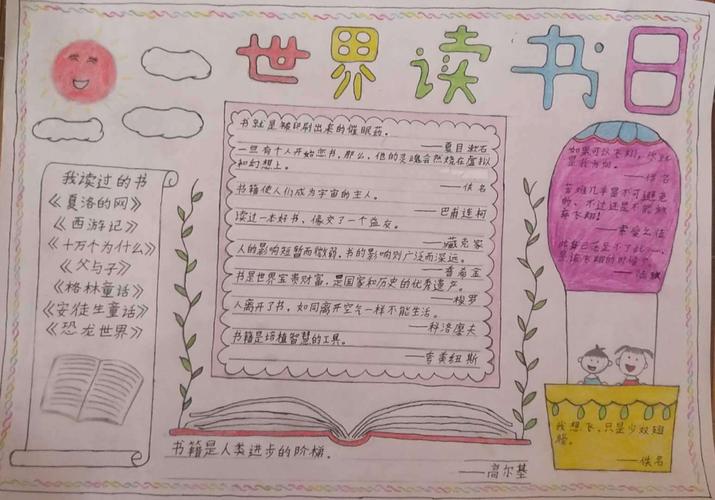 世界读书日
我读过的书
《夏洛的网》
《西游记》
《十万个为什么》
《父与子》
《格林童话》
《安徒生童话》
《恐龙世界》
书就是被印刷出来的催眠药。
——夏目漱石
一旦有个人开始恋书，那么，他的灵魂会燃烧在虚拟
和幻想上。
——佚名
书籍使人们成为宇宙的主人。
——巴甫连柯
读过一本好书，像交了一个益友。
——臧克家
人的影响短暂而微弱，书的影响则广泛而深远。
——普希金
书是世界宝贵财富，是国家和历史的优秀遗产。
——梭罗
人离开了书，如同离开空气一样不能生活。
——科洛廖夫
书籍是培植智慧的工具。
——夸美纽斯
书籍是人类进步的阶梯。
——高尔基
如果可以飞翔，
——佚名
苦难几乎是不可避免
的，不过还是不能放
弃飞翔！
——索爱么信
我想飞，只是少双翅
膀。
——佚名